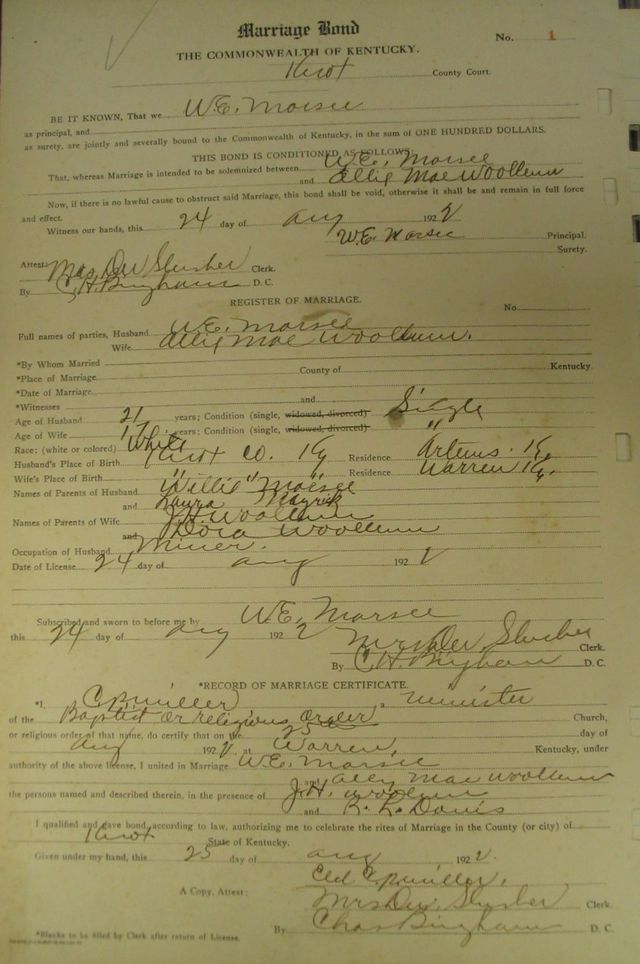 Marriage Bond
No. 1
THE COMMONWEALTH OF KENTUCKY.
Knox County Court.
BE IT KNOWN, That we W.E. Marsee
as principal, and
as surety, are jointly and severally bound to the Commonwealth of Kentucky, in the sum of ONE HUNDRED DOLLARS.
THIS BOND IS CONDITIONED AS FOLLOWS:
That, whereas Marriage is intended to be solemnized between W.E. Marsee
and Allie Mae Woollum
Now, if there is no lawful cause to obstruct said Marriage, this bond shall be void, otherwise it shall be and remain in full force
and effect.
Witness our hands, this 24 day of Aug 1922
W.E. Marsee Principal.
Surety.
Attest: Mrs. Dee Slusher Clerk.
By C.H. Bingham D. C.
REGISTER OF MARRIAGE.
No.
Full names of parties, Husband W.E. Marsee
Wife Allie Mae Woollum.
*By Whom Married
*Place of Marriage County of Kentucky.
*Date of Marriage
*Witnesses and
Age of Husband 21 years; Condition (single, widowed, divorced) Single
Age of Wife 17 years; Condition (single, widowed, divorced) "
Race: (white or colored) White
Husband's Place of Birth Knox Co. Ky Residence Artemus. Ky
Wife's Place of Birth " " " Residence Warren Ky.
Names of Parents of Husband Willie Marsee
and Laura
Names of Parents of Wife J.H. Woollum
and Dora Woollum
Occupation of Husband Miner.
Date of License 24 day of Aug 1922
Subscribed and sworn to before me by W.E. Marsee
this 24 day of Aug 1922
Mrs Dee Slusher Clerk.
By C.H. Bingham D. C.
*RECORD OF MARRIAGE CERTIFICATE.
*I, C.P. Miller, a minister
of the Baptist or religious order Church,
or religious order of that name, do certify that on the 25 day of
Aug 1922, at Warren, Kentucky, under
authority of the above license, I united in Marriage W.E. Marsee
and Alley Mae Woollum
the persons named and described therein, in the presence of J.H. Woollum
and R. L. Davis
I qualified and gave bond, according to law, authorizing me to celebrate the rites of Marriage in the County (or city) of
Knox State of Kentucky.
Given under my hand, this 25 day of Aug 1922.
C.P. Miller.
A Copy. Attest: Mrs Dee Slusher Clerk.
By Chas Bingham D. C.
*Blanks to be filled by Clerk after return of License.